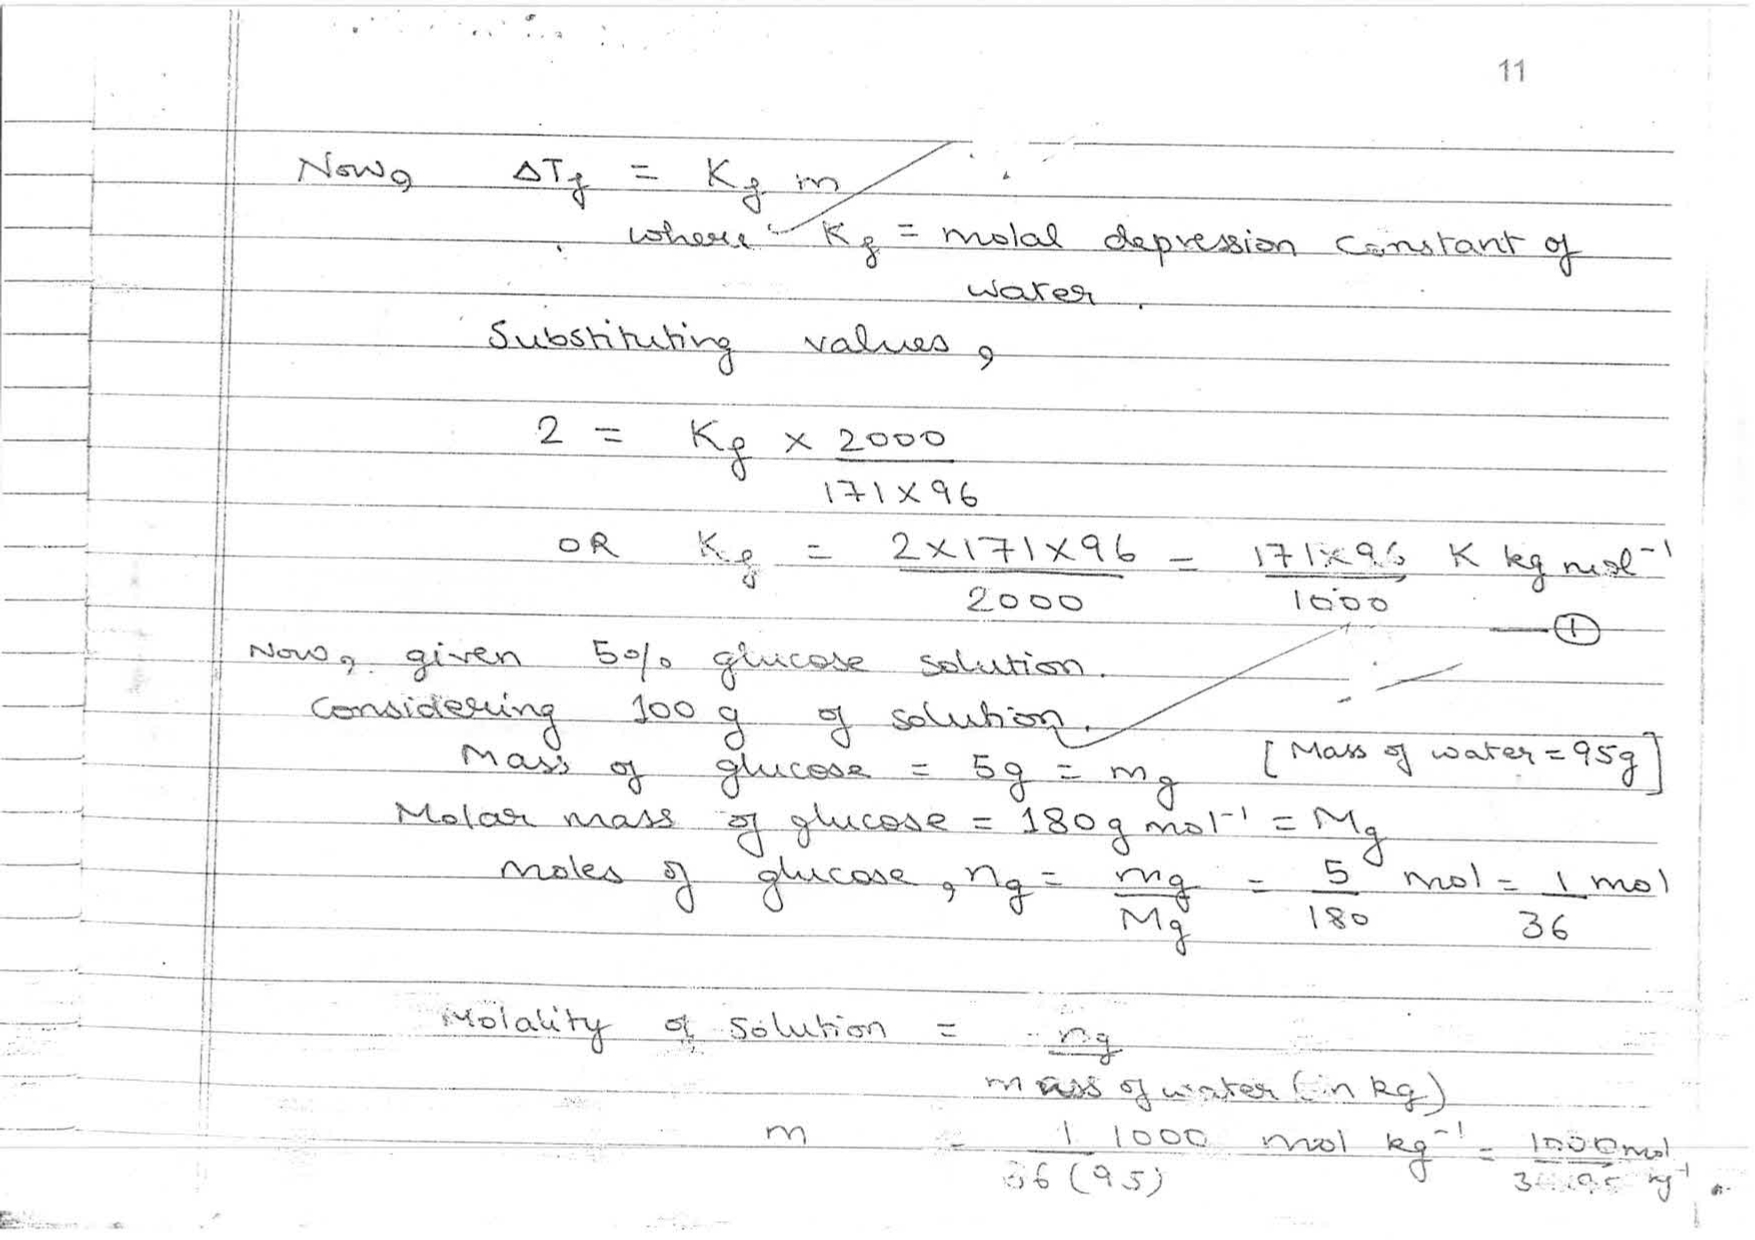 11
Now, ΔTf = Kf m
where Kf = molal depression constant of
water.
Substituting values,
2 = Kf × 2000
171×96
OR Kf = 2×171×96 = 171×96 K kg mol⁻¹
2000 1000
①
Now, given 5% glucose solution.
Considering 100 g of solution.
Mass of glucose = 5g = mg [Mass of water = 95g]
Molar mass of glucose = 180 g mol⁻¹ = Mg
moles of glucose, ng = mg = 5 mol = 1 mol
Mg 180 36
Molality of solution = ng
mass of water (in kg)
m = 1 1000 mol kg⁻¹ = 1000 mol
36 (95) kg⁻¹